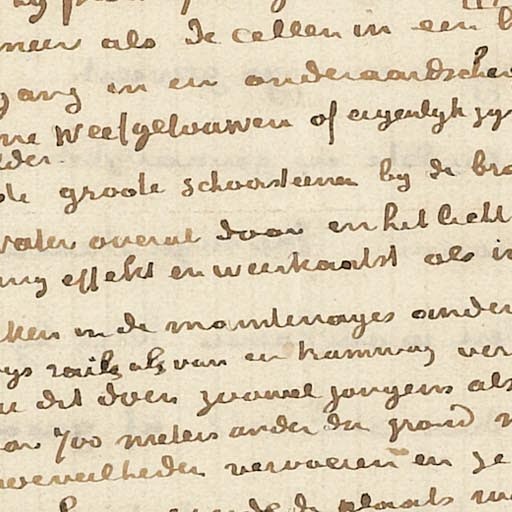 meer als de cellen in een b
gang in een onderaardschen
ine weefgetouwen of eigenlijk zijn
eder
de groote schoorsteenen bij de bra
water overal door en het licht
ing effekt en weerkaatst als in
ken in de maintenages onder
ys rails als van een tramway ver
n dit doen zoowel jongens als
an 700 meters onder den grond
hoeveelheden vervoeren en ze
de plaats